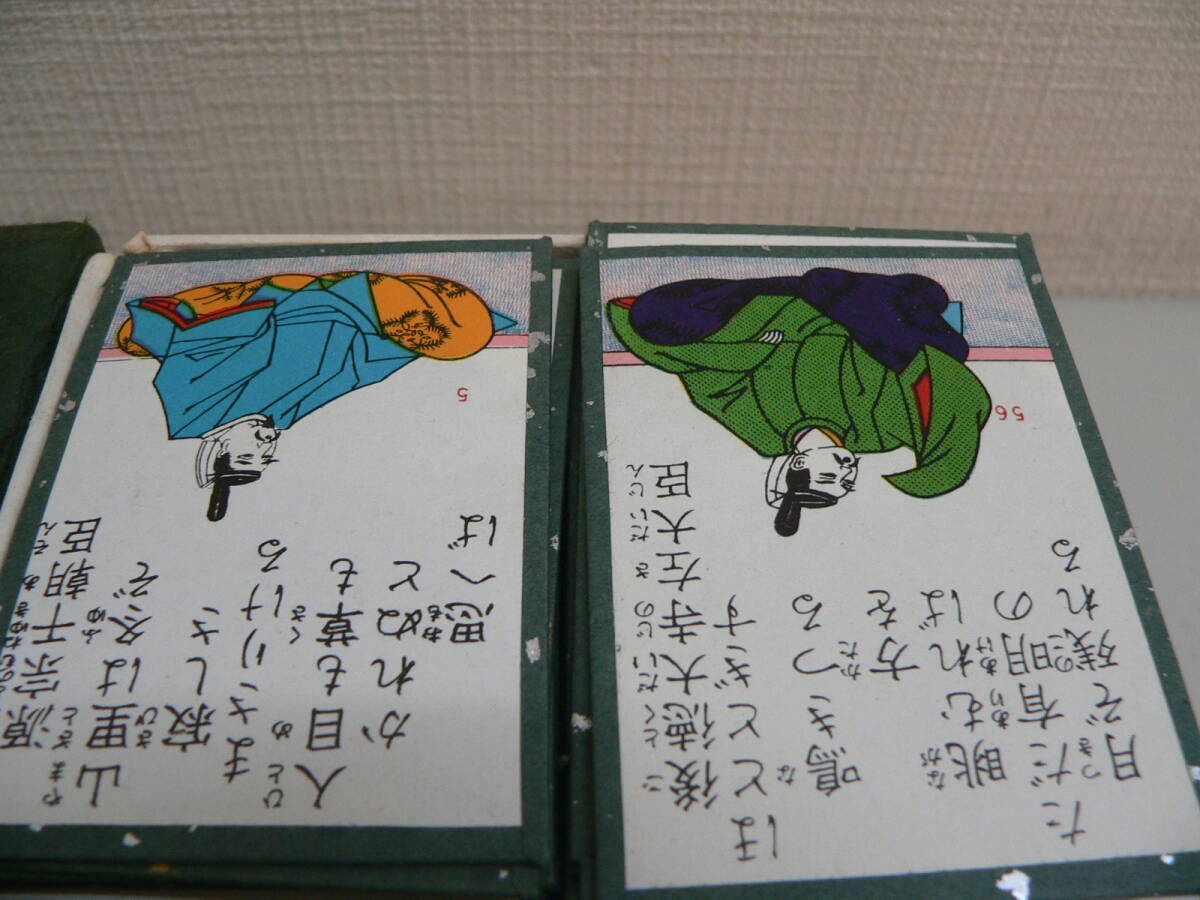 源宗于朝臣
山里は冬ぞ
寂しさ
まさりける
人目も草も
かれぬと
思へば
5
後徳大寺左大臣
ほととぎす
鳴きつる
方を
眺むれば
ただ有明の
月ぞ残れる
56